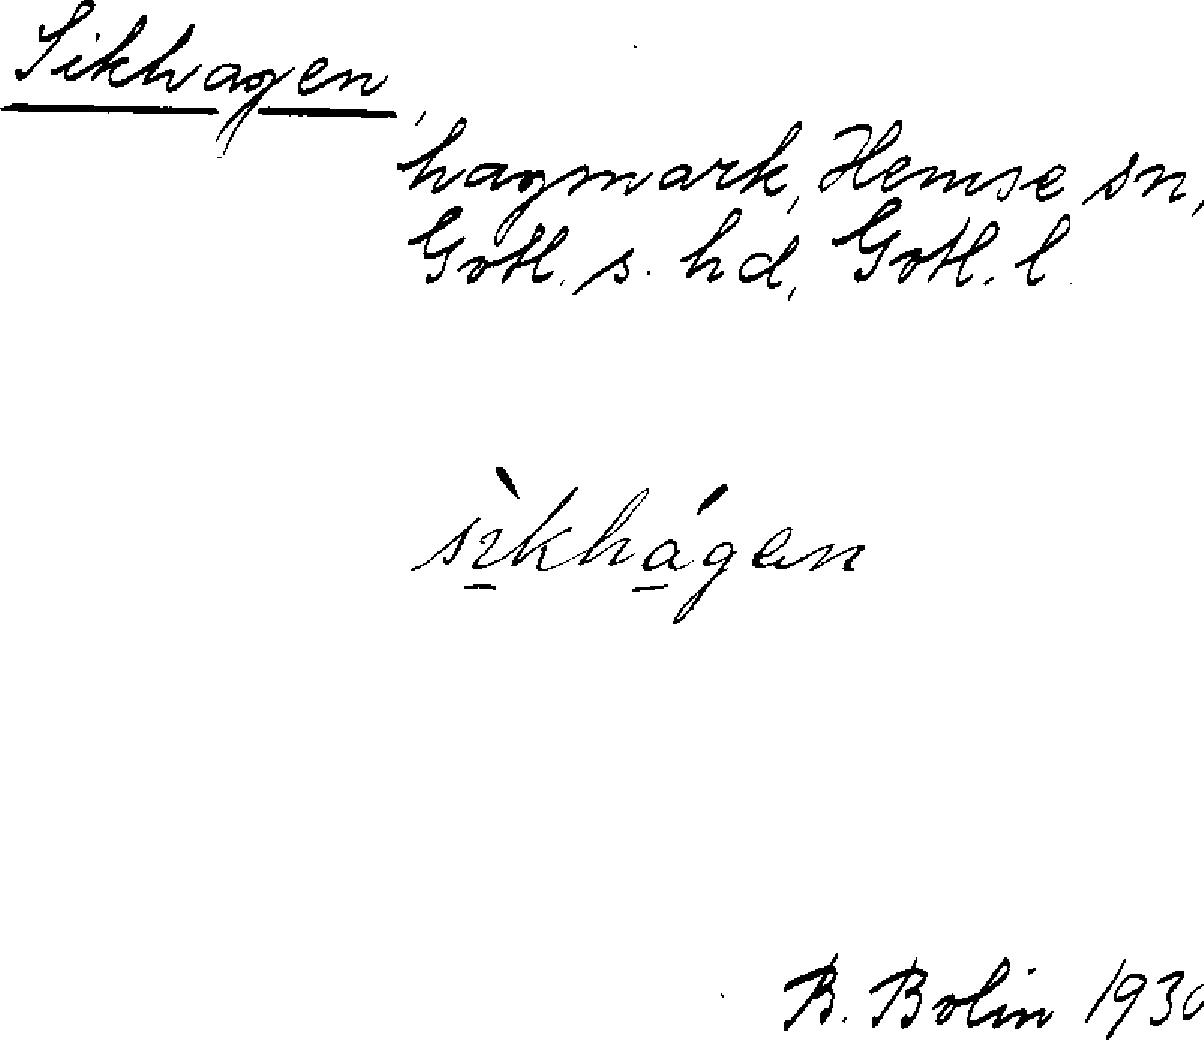 Sikhagen,
hagmark, Hemse sn,
Gotl. s. hd, Gotl. l.
sìkhágen
B. Bolin 1930